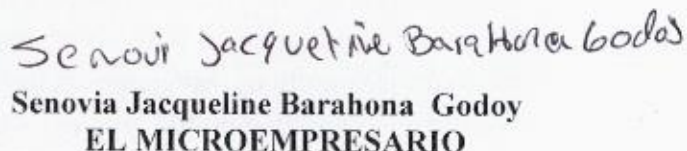 Senovi Jacqueline Barahona Godoy
Senovia Jacqueline Barahona Godoy
EL MICROEMPRESARIO